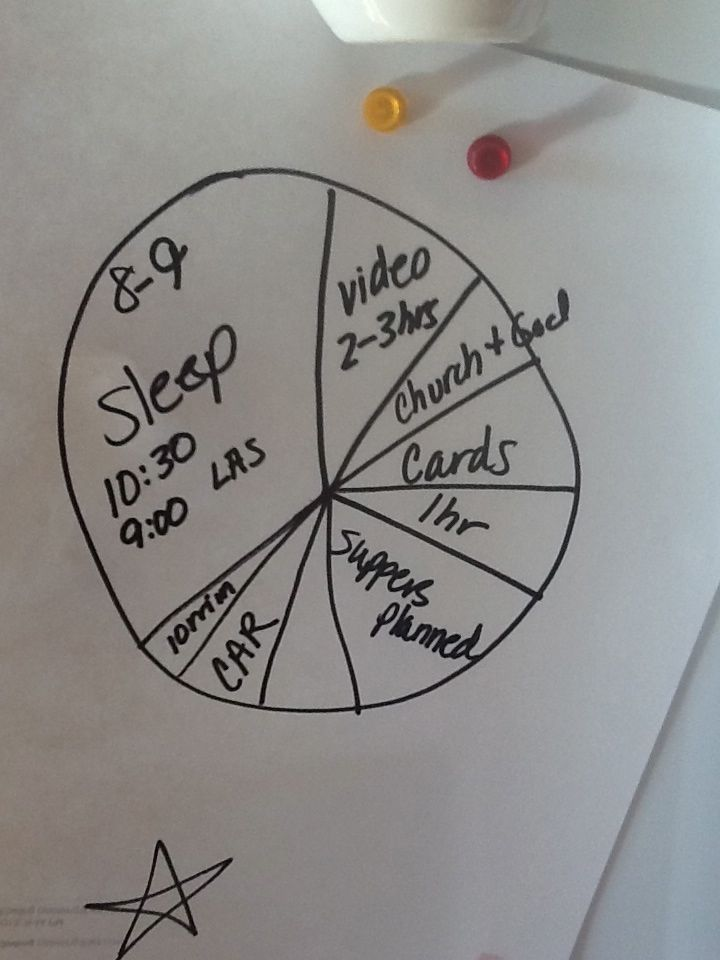 8-9
Sleep
10:30
9:00 LAS
video
2-3hrs
Church + God
Cards
1hr
Suppers
planned
CAR
10min